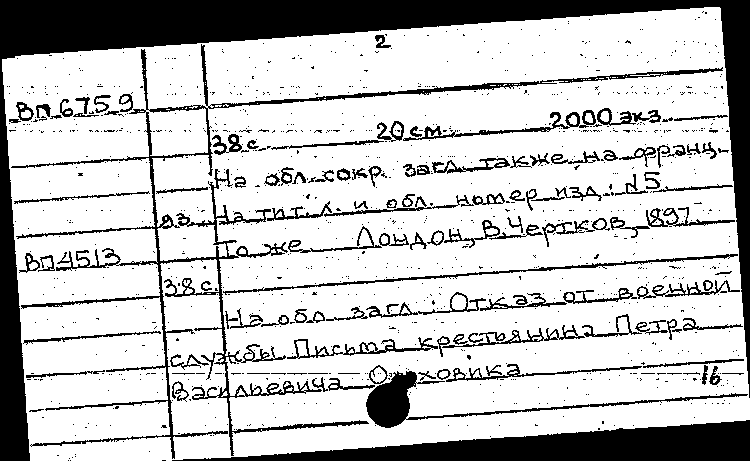 2
Вп 6759
38 с. 20 см. 2000 экз.
На обл. сокр. загл. также на франц.
яз. На тит. л. и обл. номер изд.: N 5.
То же Лондон, В. Чертков, 1897.
Вп 4513
38 с.
На обл. загл.: Отказ от военной
службы. Письма крестьянина Петра
Васильевича Ольховика
16